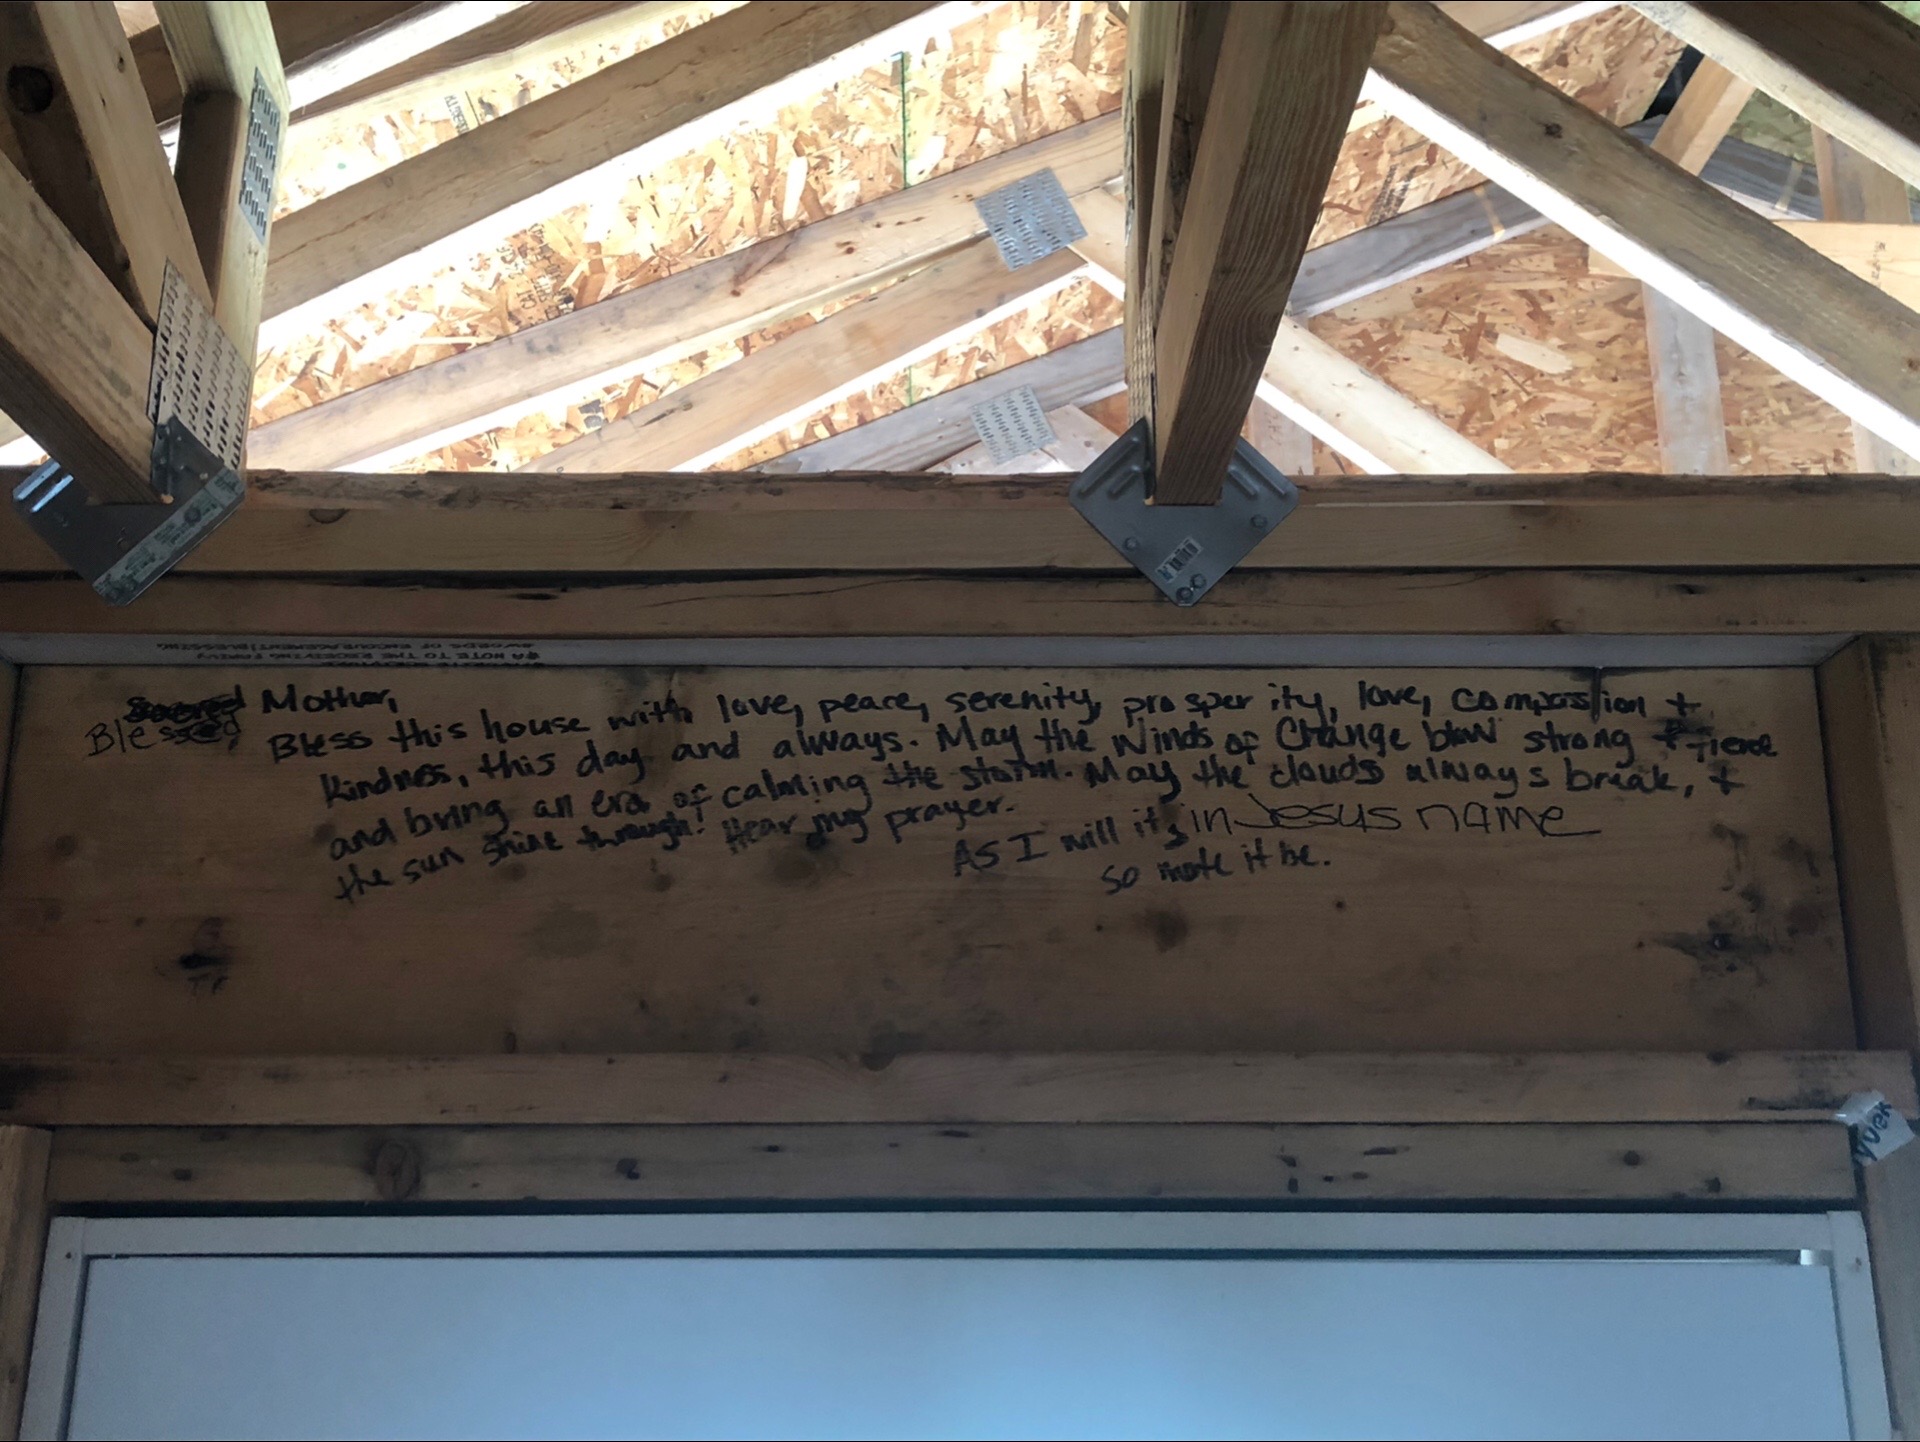 Blessed Mother,
Bless this house with love, peace, serenity, prosperity, love, compassion +
kindness, this day and always. May the winds of change blow strong + fierce
and bring an era of calming the storm. May the clouds always break, +
the sun shine through! Hear my prayer.
As I will it, in Jesus name
so mote it be.
#A NOTE TO THE RECEIVING FAMILY
#WORDS OF ENCOURAGEMENT/BLESSING